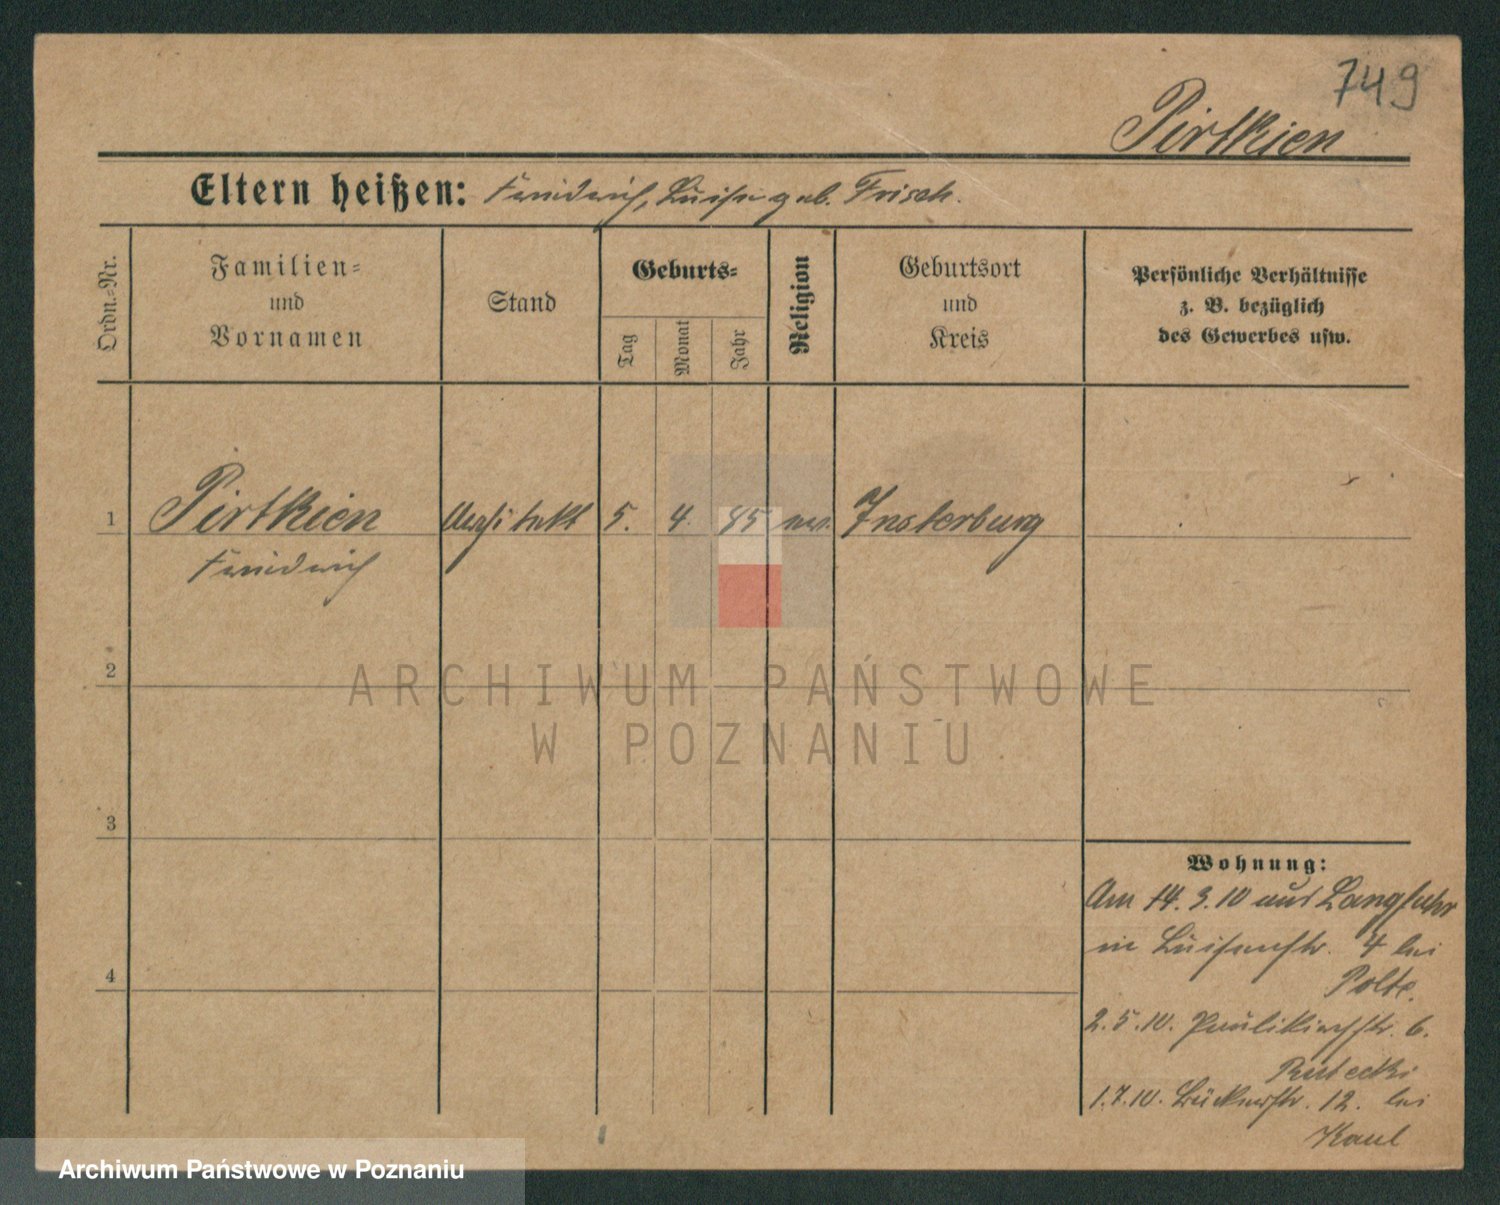 749
Pirtkien
Eltern heißen: Friedrich, Luise geb. Frisch.
Ordn.-Nr.
Familien-
und
Vornamen
Stand
Geburts-
Tag
Monat
Jahr
Religion
Geburtsort
und
Kreis
Persönliche Verhältnisse
z. B. bezüglich
des Gewerbes usw.
1 Pirtkien Architekt 5. 4. 85 ev. Insterburg
Friedrich
2
3
4
Wohnung:
Am 14. 3. 10 aus Langfuhr
in Luisenstr. 4 bei
Polte.
2. 5. 10. Paulikirchstr. 6.
Rutecki
1. 7. 10. 12. bei
Kaul
ARCHIWUM PAŃSTWOWE
W POZNANIU
Archiwum Państwowe w Poznaniu